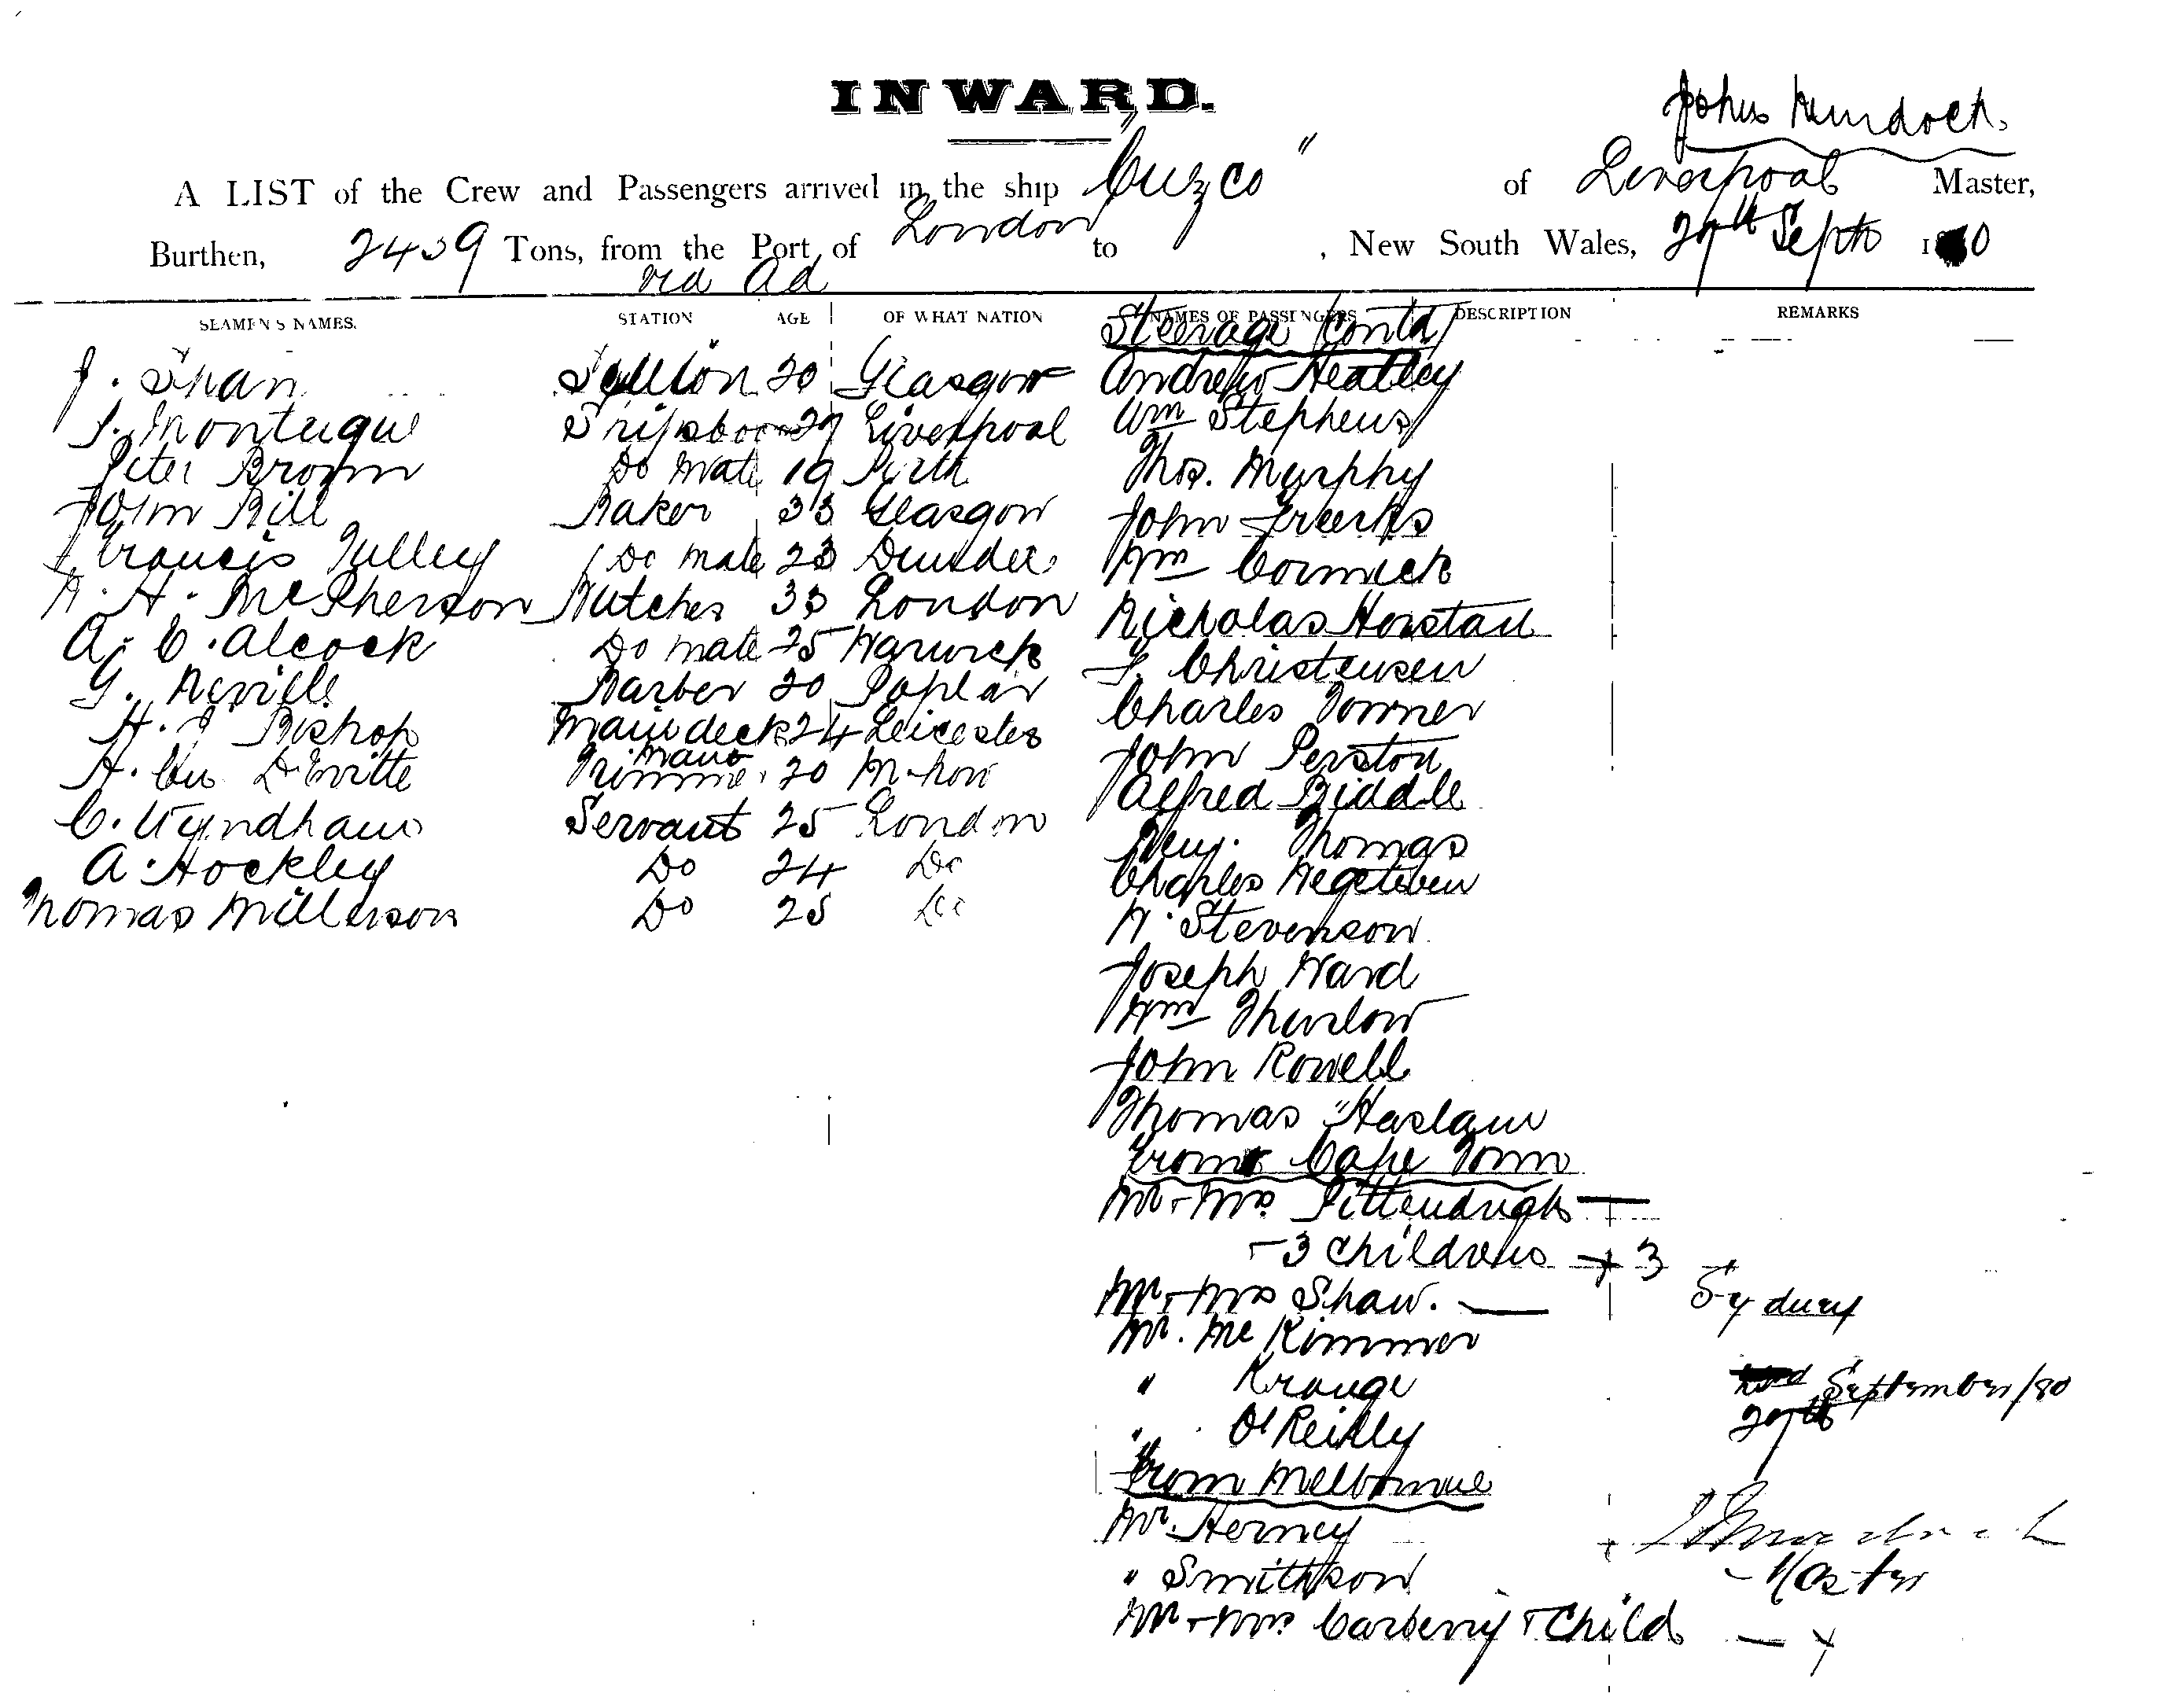 INWARD.
John Murdoch.
A LIST of the Crew and Passengers arrived in the ship "Cuzco" of Liverpool Master,
Burthen, 2439 Tons, from the Port of London to , New South Wales, 29th Septr 1880
via Ad
SEAMEN'S NAMES. STATION AGE OF WHAT NATION NAMES OF PASSENGERS DESCRIPTION REMARKS
Steerage Contd
J. Swan 20 Glasgow Andrew Heatley
J. Montague 29 Liverpool Wm Stephens
Peter Brown Do Mate 19 Perth Thos. Murphy
John Bill Baker 33 Glasgow John
Francis Tulley Do mate 23 Dundee Wm Cormick
A. McPherson Butcher 33 London Nicholas
A. C. Alcock Do mate 25 Warwick Christensen
G. Neville Barber 20 Poplar Charles Towner
H. J Bishop Main deck 24 Leicester John Perston
H. Dewitte 20 Alfred Biddle
C. Wyndham Servant 25 London Benj. Thomas
A. Hockley Do 24 Do Charles
Thomas Millerson Do 25 Do
W. Stevenson
Joseph Ward
Wm Thurlow
John Rowell
Thomas Haslam
From Cape Town
Mr + Mrs Pittendrigh —
+ 3 Children + 3
Mr + Mrs Shaw. — Sydney
Mr. McKimmer
" Krauge September/80
" O'Reilly 29th
From Melbourne
Mr. Herney J Murdoch
" Smithson Master
Mr + Mrs. Carberry + Child —